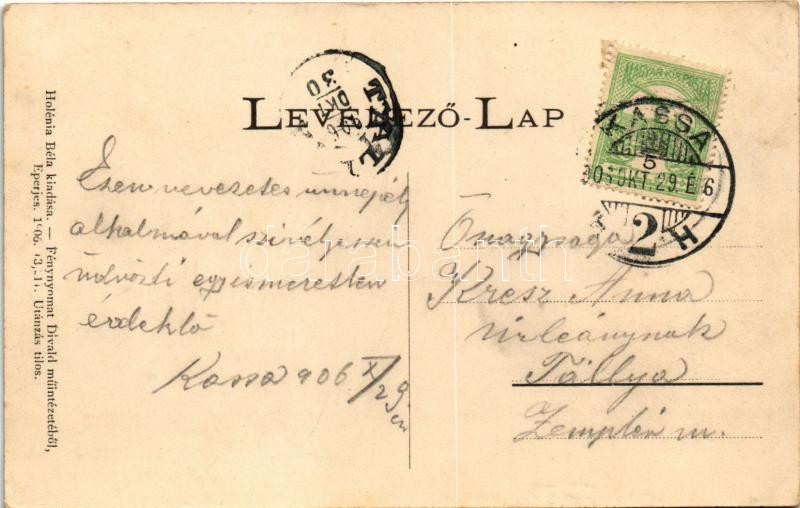 LEVELEZŐ-LAP
MAGYAR KIR. POSTA
KASSA
5
906 OKT. 29. É 6
2
H
TÁLL
906
OKT
30
Ezen nevezetes ünnepély
alkalmával szivélyesen
üdvözli egy ismeretlen
érdeklő
Kassa 906 X/29 én
Önagysága
Kresz Anna
úrleánynak
Tállya
Zemplén m.
Holénia Béla kiadása. — Fénynyomat Divald műintézetéből,
Eperjes. 1906. Utánzás tilos.
darabanth